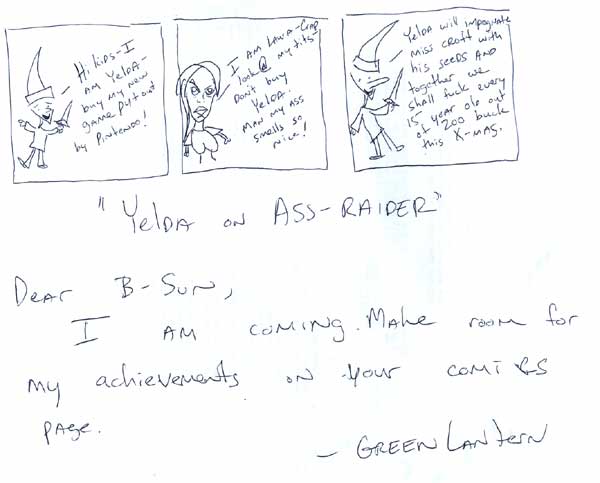 Hi Kids-I
AM YELDA-
buy my new
game put out
by Pintendo!
I AM LAWA-CRAP
look @ my tits!
Don't buy
YELDA.
MAN my ASS
smells so
nice!
YELDA will impregnate
Miss Croft with
his seeds AND
together we
shall fuck every
15 year old out
of 200 bucks
this X-MAS.
"YELDA ON ASS-RAIDER"
Dear B-Sun,
I AM coming. Make room for
my achievements on your comics
page.
- GREEN LANTERN